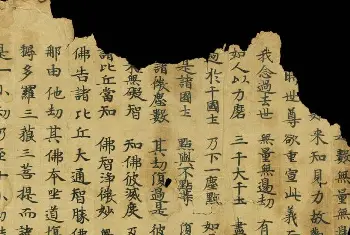 數無量無邊
來知見力故
時世尊欲重宣此義
我念過去世　無量無邊劫　有
如人以力磨　三千大千土　盡
過於千國土　乃下一塵點　如
是諸國土　點與不點等　復
諸微塵數　其劫復過是　彼
無礙智　知彼佛滅度　及
諸比丘當知　佛智淨微妙　无
佛告諸比丘大通智勝佛
那由他劫其佛本坐道場
耨多羅三藐三菩提而諸
是一小劫乃至十小劫結